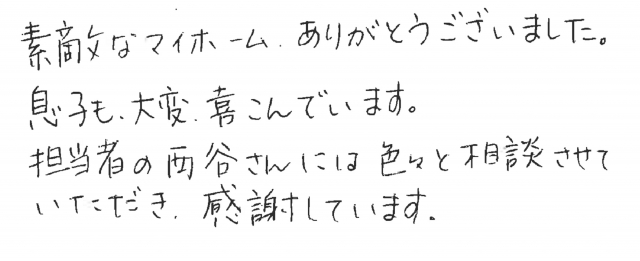 素敵なマイホーム、ありがとうございました。
息子も、大変、喜こんでいます。
担当者の西谷さんには色々と相談させて
いただき、感謝しています。